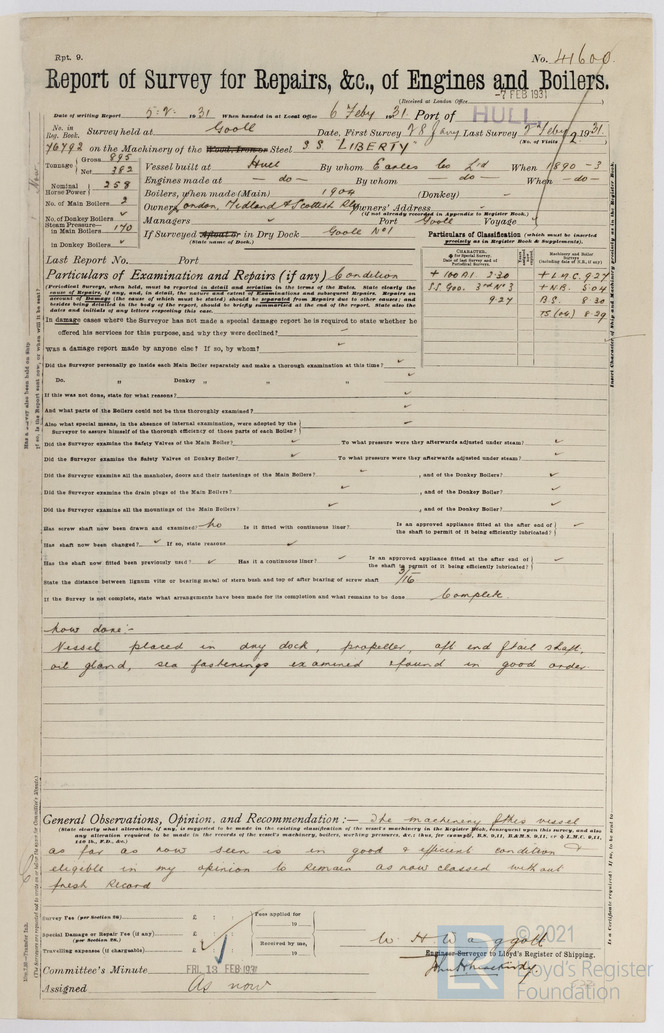 Rpt. 9.
No. 41600
Report of Survey for Repairs, &c., of Engines and Boilers.
(Received at London Office -7 FEB 1931)
Date of writing Report 5.2. 1931 When handed in at Local Office 6 Feby 1931 Port of HULL
No. in Reg. Book. Survey held at Goole Date, First Survey 28 Jany Last Survey 5 Feby 1931
(No. of Visits 2)
76792 on the Machinery of the Wood, Iron or Steel S.S. LIBERTY
Tonnage Gross 895 Net 382
Vessel built at Hull By whom Earles Co Ld When 1890-3
Nominal Horse Power 258
Engines made at - do - By whom - do - When - do -
No. of Main Boilers 2
Boilers, when made (Main) 1904 (Donkey) -
No. of Donkey Boilers
Owners London, Midland & Scottish Rly Owners' Address
(if not already recorded in Appendix to Register Book.)
Steam Pressure in Main Boilers 170
Managers Port Goole Voyage
in Donkey Boilers
If Surveyed Afloat or in Dry Dock Goole No 1
(State name of Dock.)
Particulars of Classification (which must be inserted precisely as in Register Book & Supplements).
Last Report No. Port
CHARACTER, for Special Survey. Date of last Survey and of Periodical Surveys.
Machinery and Boiler Surveys (including date of N.B., if any)
+ 100 A1 3.30
+ L.M.C. 9.27
S.S. Goo. 3rd No 3
+ N.B. 5.04
9.27
B.S. 8.30
TS (og) 8.29
Particulars of Examination and Repairs (if any) Condition
(Periodical Surveys, when held, must be reported in detail and seriatim in the terms of the Rules. State clearly the cause of Repairs, if any, and, in detail, the nature and extent of Examinations and subsequent Repairs. Repairs on account of Damage (the cause of which must be stated) should be separated from Repairs due to other causes; and besides being detailed in the body of the report, should be briefly summarised at the end of the report. State also the dates and initials of any letters respecting this case.
In damage cases where the Surveyor has not made a special damage report he is required to state whether he offered his services for this purpose, and why they were declined?
Was a damage report made by anyone else? If so, by whom?
Did the Surveyor personally go inside each Main Boiler separately and make a thorough examination at this time?
Do. " Donkey " " "
If this was not done, state for what reasons?
And what parts of the Boilers could not be thus thoroughly examined?
Also what special means, in the absence of internal examination, were adopted by the Surveyor to assure himself of the thorough efficiency of those parts of each Boiler?
Did the Surveyor examine the Safety Valves of the Main Boiler? To what pressure were they afterwards adjusted under steam?
Did the Surveyor examine the Safety Valves of Donkey Boiler? To what pressure were they afterwards adjusted under steam?
Did the Surveyor examine all the manholes, doors and their fastenings of the Main Boilers? , and of the Donkey Boilers?
Did the Surveyor examine the drain plugs of the Main Boilers? , and of the Donkey Boiler?
Did the Surveyor examine all the mountings of the Main Boilers? , and of the Donkey Boiler?
Has screw shaft now been drawn and examined? No Is it fitted with continuous liner? Is an approved appliance fitted at the after end of the shaft to permit of it being efficiently lubricated?
Has shaft now been changed? If so, state reasons
Has the shaft now fitted been previously used? Has it a continuous liner? Is an approved appliance fitted at the after end of the shaft to permit of it being efficiently lubricated?
State the distance between lignum vitæ or bearing metal of stern bush and top of after bearing of screw shaft 3/16
If the Survey is not complete, state what arrangements have been made for its completion and what remains to be done Complete.
Now done:-
Vessel placed in dry dock, propeller, aft end of tail shaft,
oil gland, sea fastenings examined & found in good order
General Observations, Opinion, and Recommendation:— The machinery of this vessel
(State clearly what alteration, if any, is suggested to be made in the existing classification of the vessel's machinery in the Register Book, consequent upon this survey, and also any alteration required to be made in the records of the vessel's machinery, boilers, working pressures, &c.; thus, for example, B.S. 9,11, B.&M.S. 9,11, or L.M.C. 9,11, 140 lb., F.D., &c.)
as far as now seen is in good & efficient condition &
eligible in my opinion to remain as now classed without
fresh Record
Survey Fee (per Section 29) £ : :
Fees applied for 19
Special Damage or Repair Fee (if any) (per Section 29.) £ : :
Received by me, 19
Travelling expenses (if chargeable) £ : :
W. H. Waggott
Engineer-Surveyor to Lloyd's Register of Shipping.
Committee's Minute FRI. 13 FEB 1931
Assigned As now
© 2021
LR
Lloyd's Register
Foundation